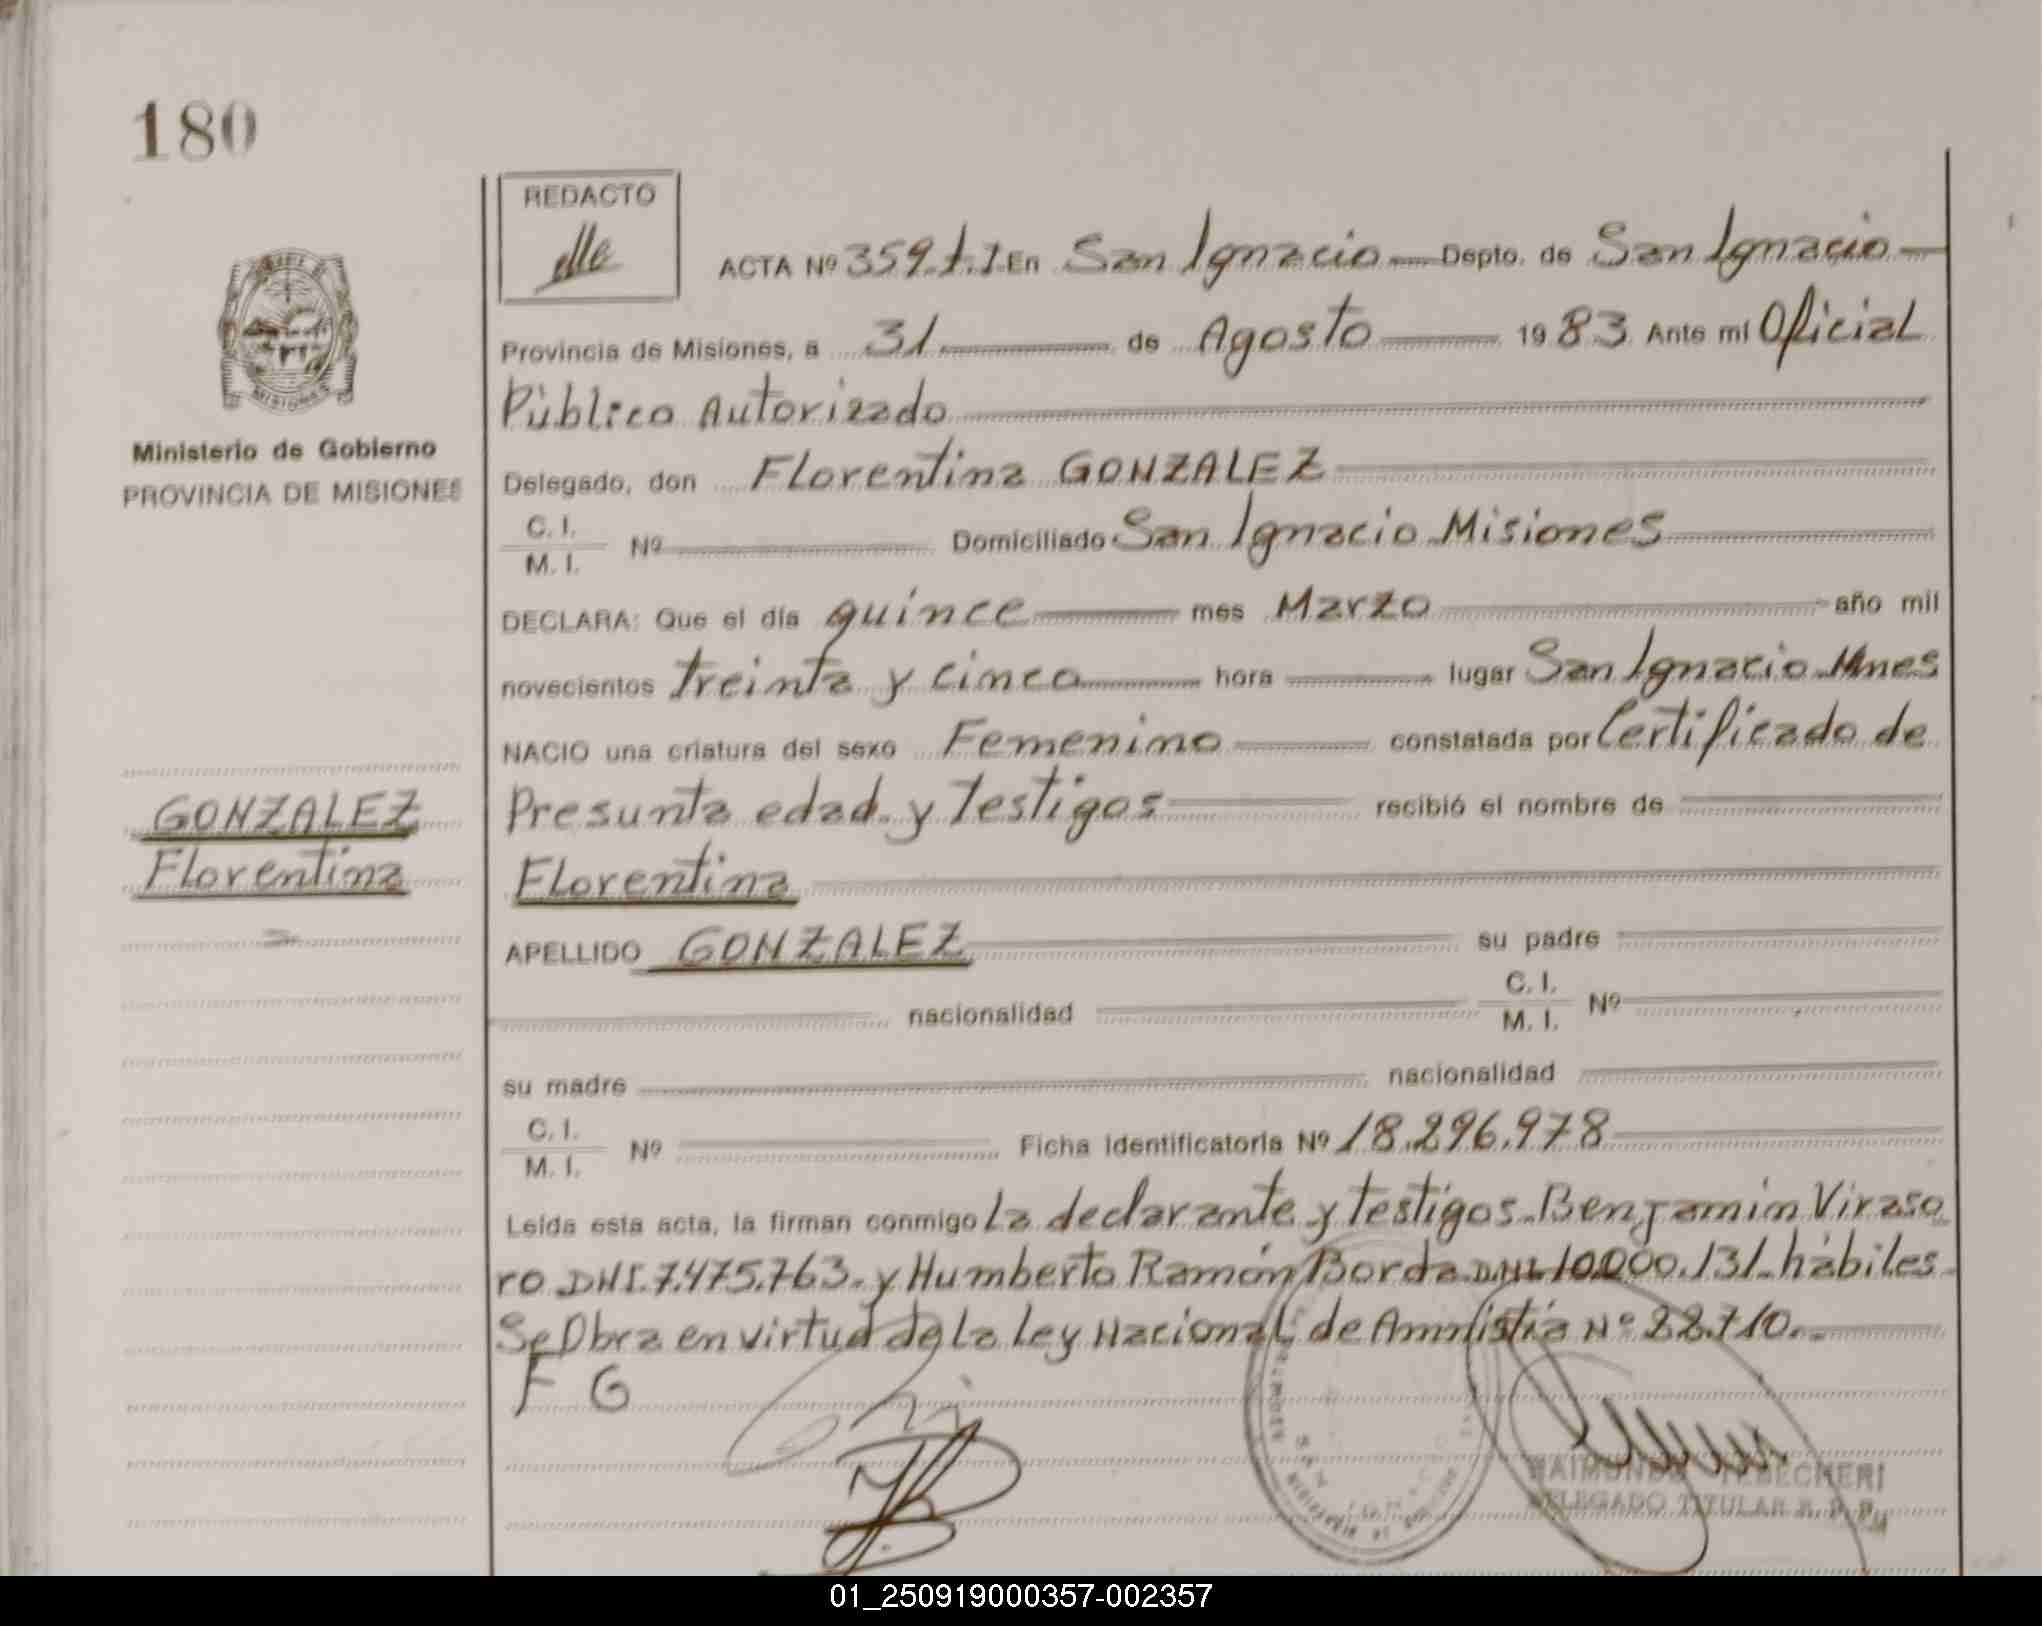 180
REDACTO
ACTA Nº 359.t.I. En San Ignacio Depto. de San Ignacio
Provincia de Misiones, a 31 de Agosto 19 83 Ante mí Oficial
Público Autorizado
Ministerio de Gobierno
PROVINCIA DE MISIONES
Delegado, don Florentina GONZALEZ
C. I.
M. I. Nº Domiciliado San Ignacio Misiones
DECLARA: Que el día quince mes Marzo año mil
novecientos treinta y cinco hora lugar San Ignacio Mnes
NACIO una criatura del sexo Femenino constatada por Certificado de
Presunta edad y testigos recibió el nombre de
GONZALEZ
Florentina
Florentina
APELLIDO GONZALEZ su padre
nacionalidad C. I.
M. I. Nº
su madre nacionalidad
C. I.
M. I. Nº Ficha Identificatoria Nº 18.296.978
Leída esta acta, la firman conmigo La declarante y testigos Benjamin Viraso
ro DNI.7.475.763. y Humberto Ramón Borda DNI 10.000.131. hábiles
Se Obra en virtud de la Ley Nacional de Amnistía Nº 22.710.
F G
RAIMUNDO
DELEGADO TITULAR R. P. P.
01_250919000357-002357